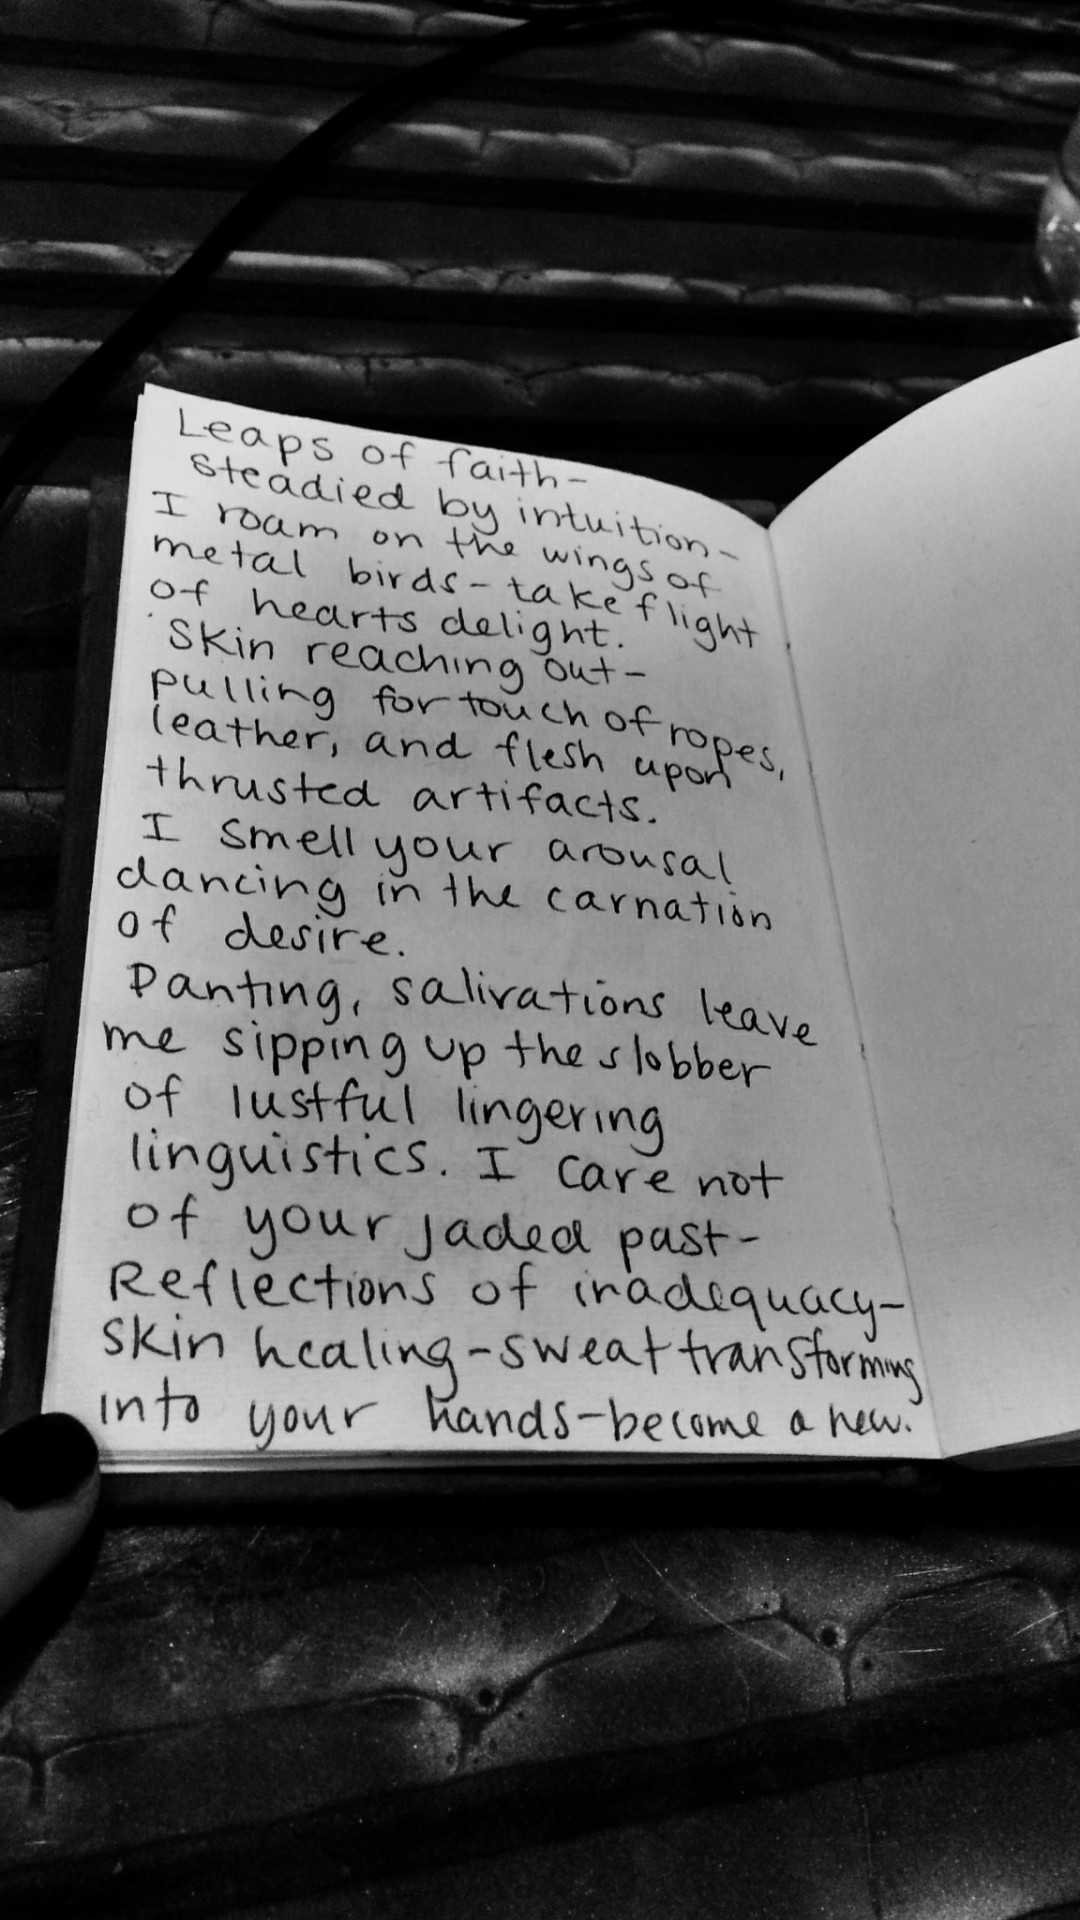 Leaps of faith-
steadied by intuition-
I roam on the wings of
metal birds-take flight
of hearts delight.
Skin reaching out-
pulling for touch of ropes,
leather, and flesh upon
thrusted artifacts.
I smell your arousal
dancing in the carnation
of desire.
Panting, salivations leave
me sipping up the slobber
of lustful lingering
linguistics. I care not
of your jaded past-
Reflections of inadequacy-
skin healing-sweat transforming
into your hands-become a new.